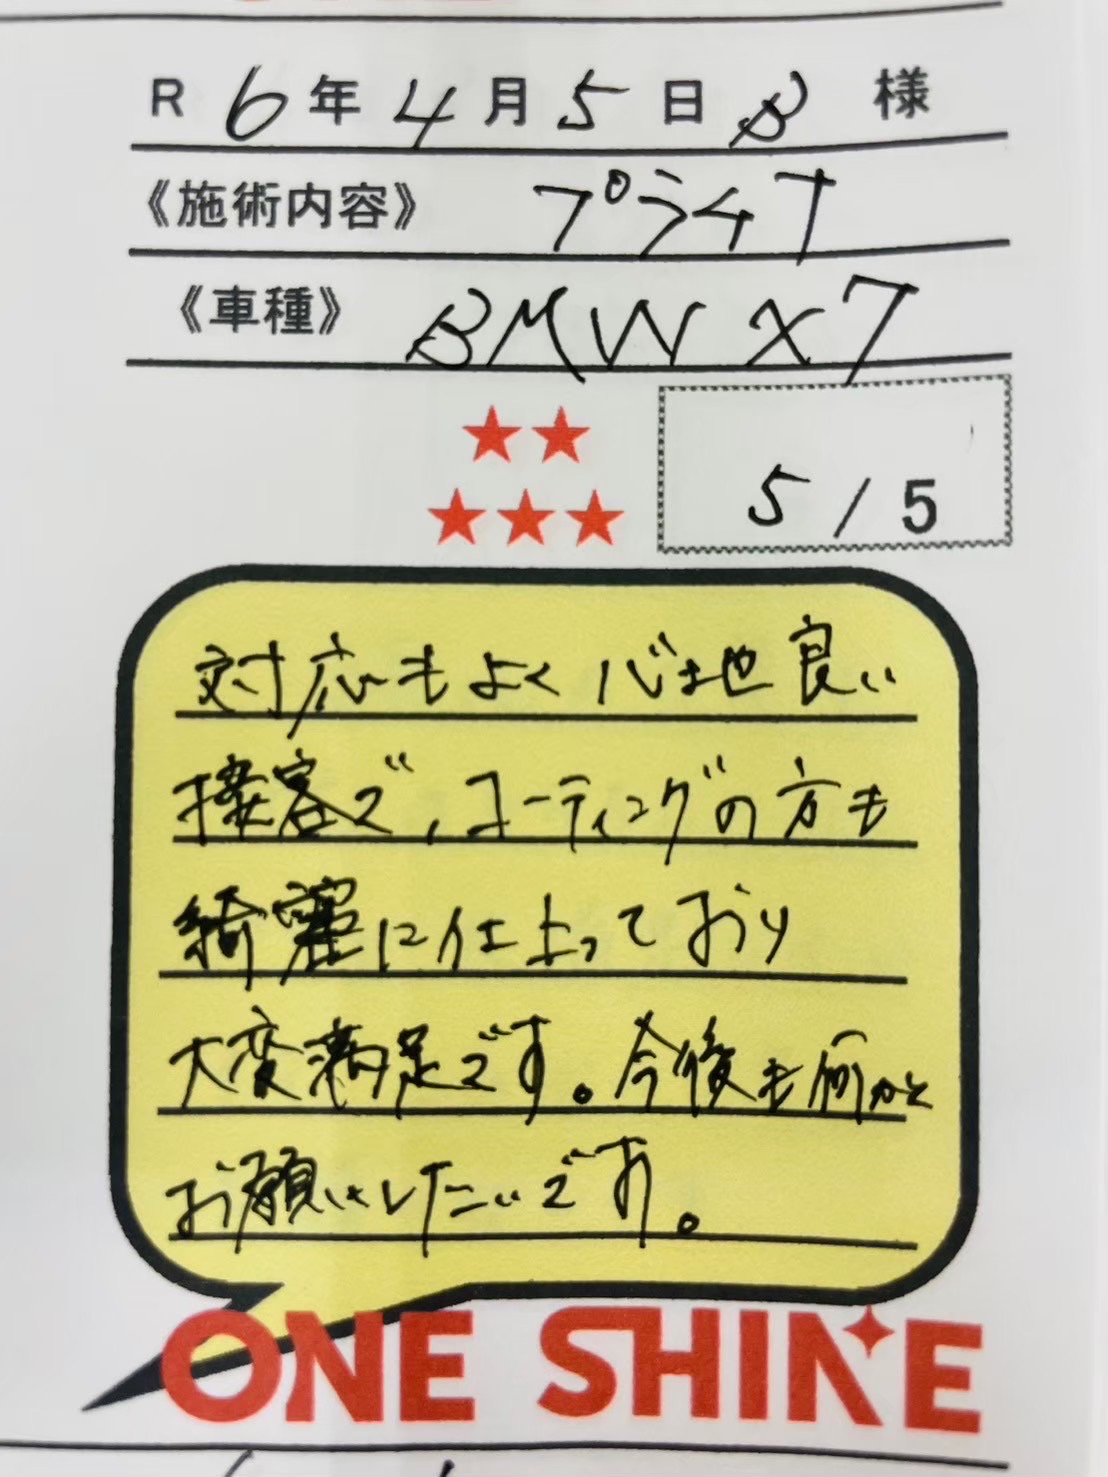 R 6年4月5日 B 様
《施術内容》 プラチナ
《車種》 BMW X7
5/5
対応もよく心地良い
接客で、コーティングの方も
綺麗に仕上っており
大変満足です。今後も何かと
お願いしたいです。
ONE SHINE